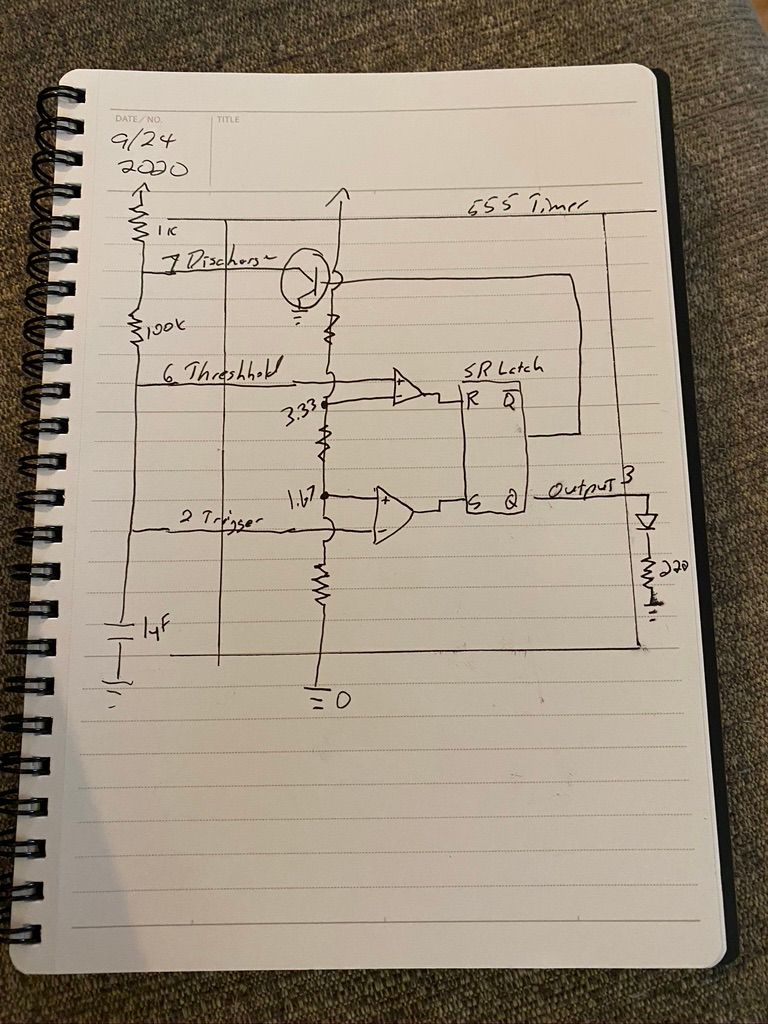 DATE/NO.
TITLE
9/24
2020
555 Timer
1K
7 Discharge
100K
6 Threshhold
SR Latch
R Q̅
3.33
1.67
Output 3
S Q
2 Trigger
220
1μF
0